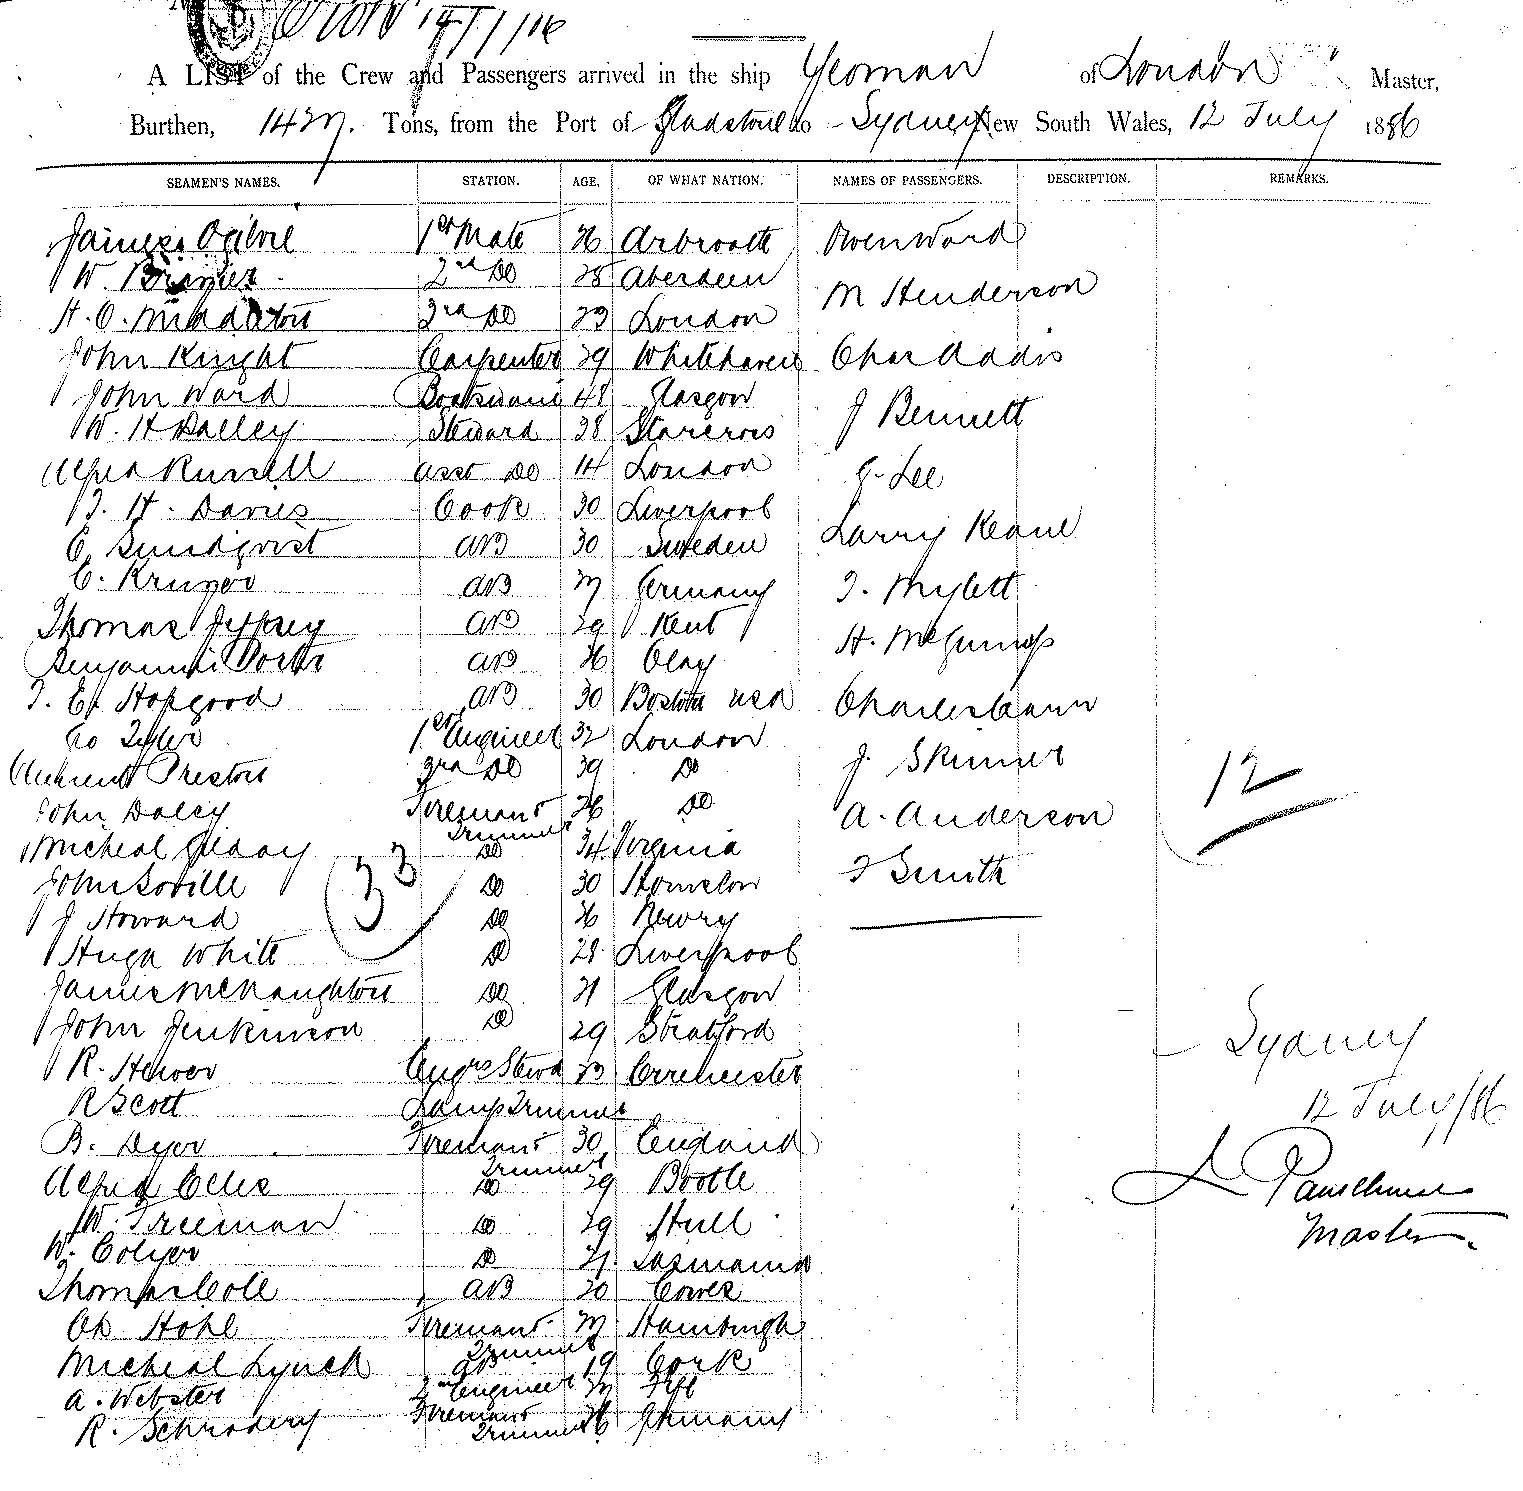 A LIST of the Crew and Passengers arrived in the ship Yeoman of London Master,
Burthen, 1427. Tons, from the Port of Gladstone to Sydney New South Wales, 12 July 1886
SEAMEN'S NAMES. STATION. AGE. OF WHAT NATION. NAMES OF PASSENGERS. DESCRIPTION. REMARKS.
James Ogilvie 1st Mate 26 Arbroath Owen Ward
W. 2nd Do 28 Aberdeen M Henderson
H. O. Middleton 3rd Do 23 London
John Knight Carpenter 29 Whitehaven Chas Addis
John Ward Boatswain 48 Glasgow J Bennett
W. H Dalley Steward 38 Starcross
Alfred Russell Asst Do 14 London G. Lee
J. H. Davies Cook 30 Liverpool
C. Sundqvist AB 30 Sweden Larry Keane
C. Kruger AB 27 Germany T. Mylett
Thomas Jeffrey AB 29 Kent
Benjamin Porter AB 26 H.
T. E. Hopgood AB 30 Boston USA Charles
Geo Tyler 1st Engineer 32 London
Preston 3rd Do 39 Do J. Skinner
John Daley Fireman & Trimmer 26 Do A. Anderson
Micheal 34 Virginia
John Soville Do 30 Hounslow J Smith
J Howard Do 26 Newry
Hugh White Do 28 Liverpool
James McNaughton Do 21 Glasgow
John Jenkinson Do 29 Stratford
R. Hewer Engrs Stewd 23 Cirencester
R Scott Lamp Trimmer
B. Dyer Fireman & Trimmer 30 England
Alfred Ellis Do 29 Bootle
W. Freeman Do 29 Hull
W. Colyer Do 21 Tasmania
Thomas Cole AB 20 Cowes
Ch Hohl Fireman & Trimmer 27 Hamburgh
Micheal Lynch AB 19 Cork
A. Webster 2nd Engineer 27 Fife
R. Fireman & Trimmer 26 Germany
33
12
Sydney
12 July/86
Master